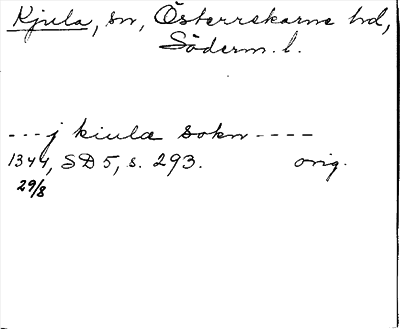 Kjula, sn, Österrekarne hd,
Söderm. l.
---j kiulæ sokn----
1344, SD 5, s. 293. orig.
29/8